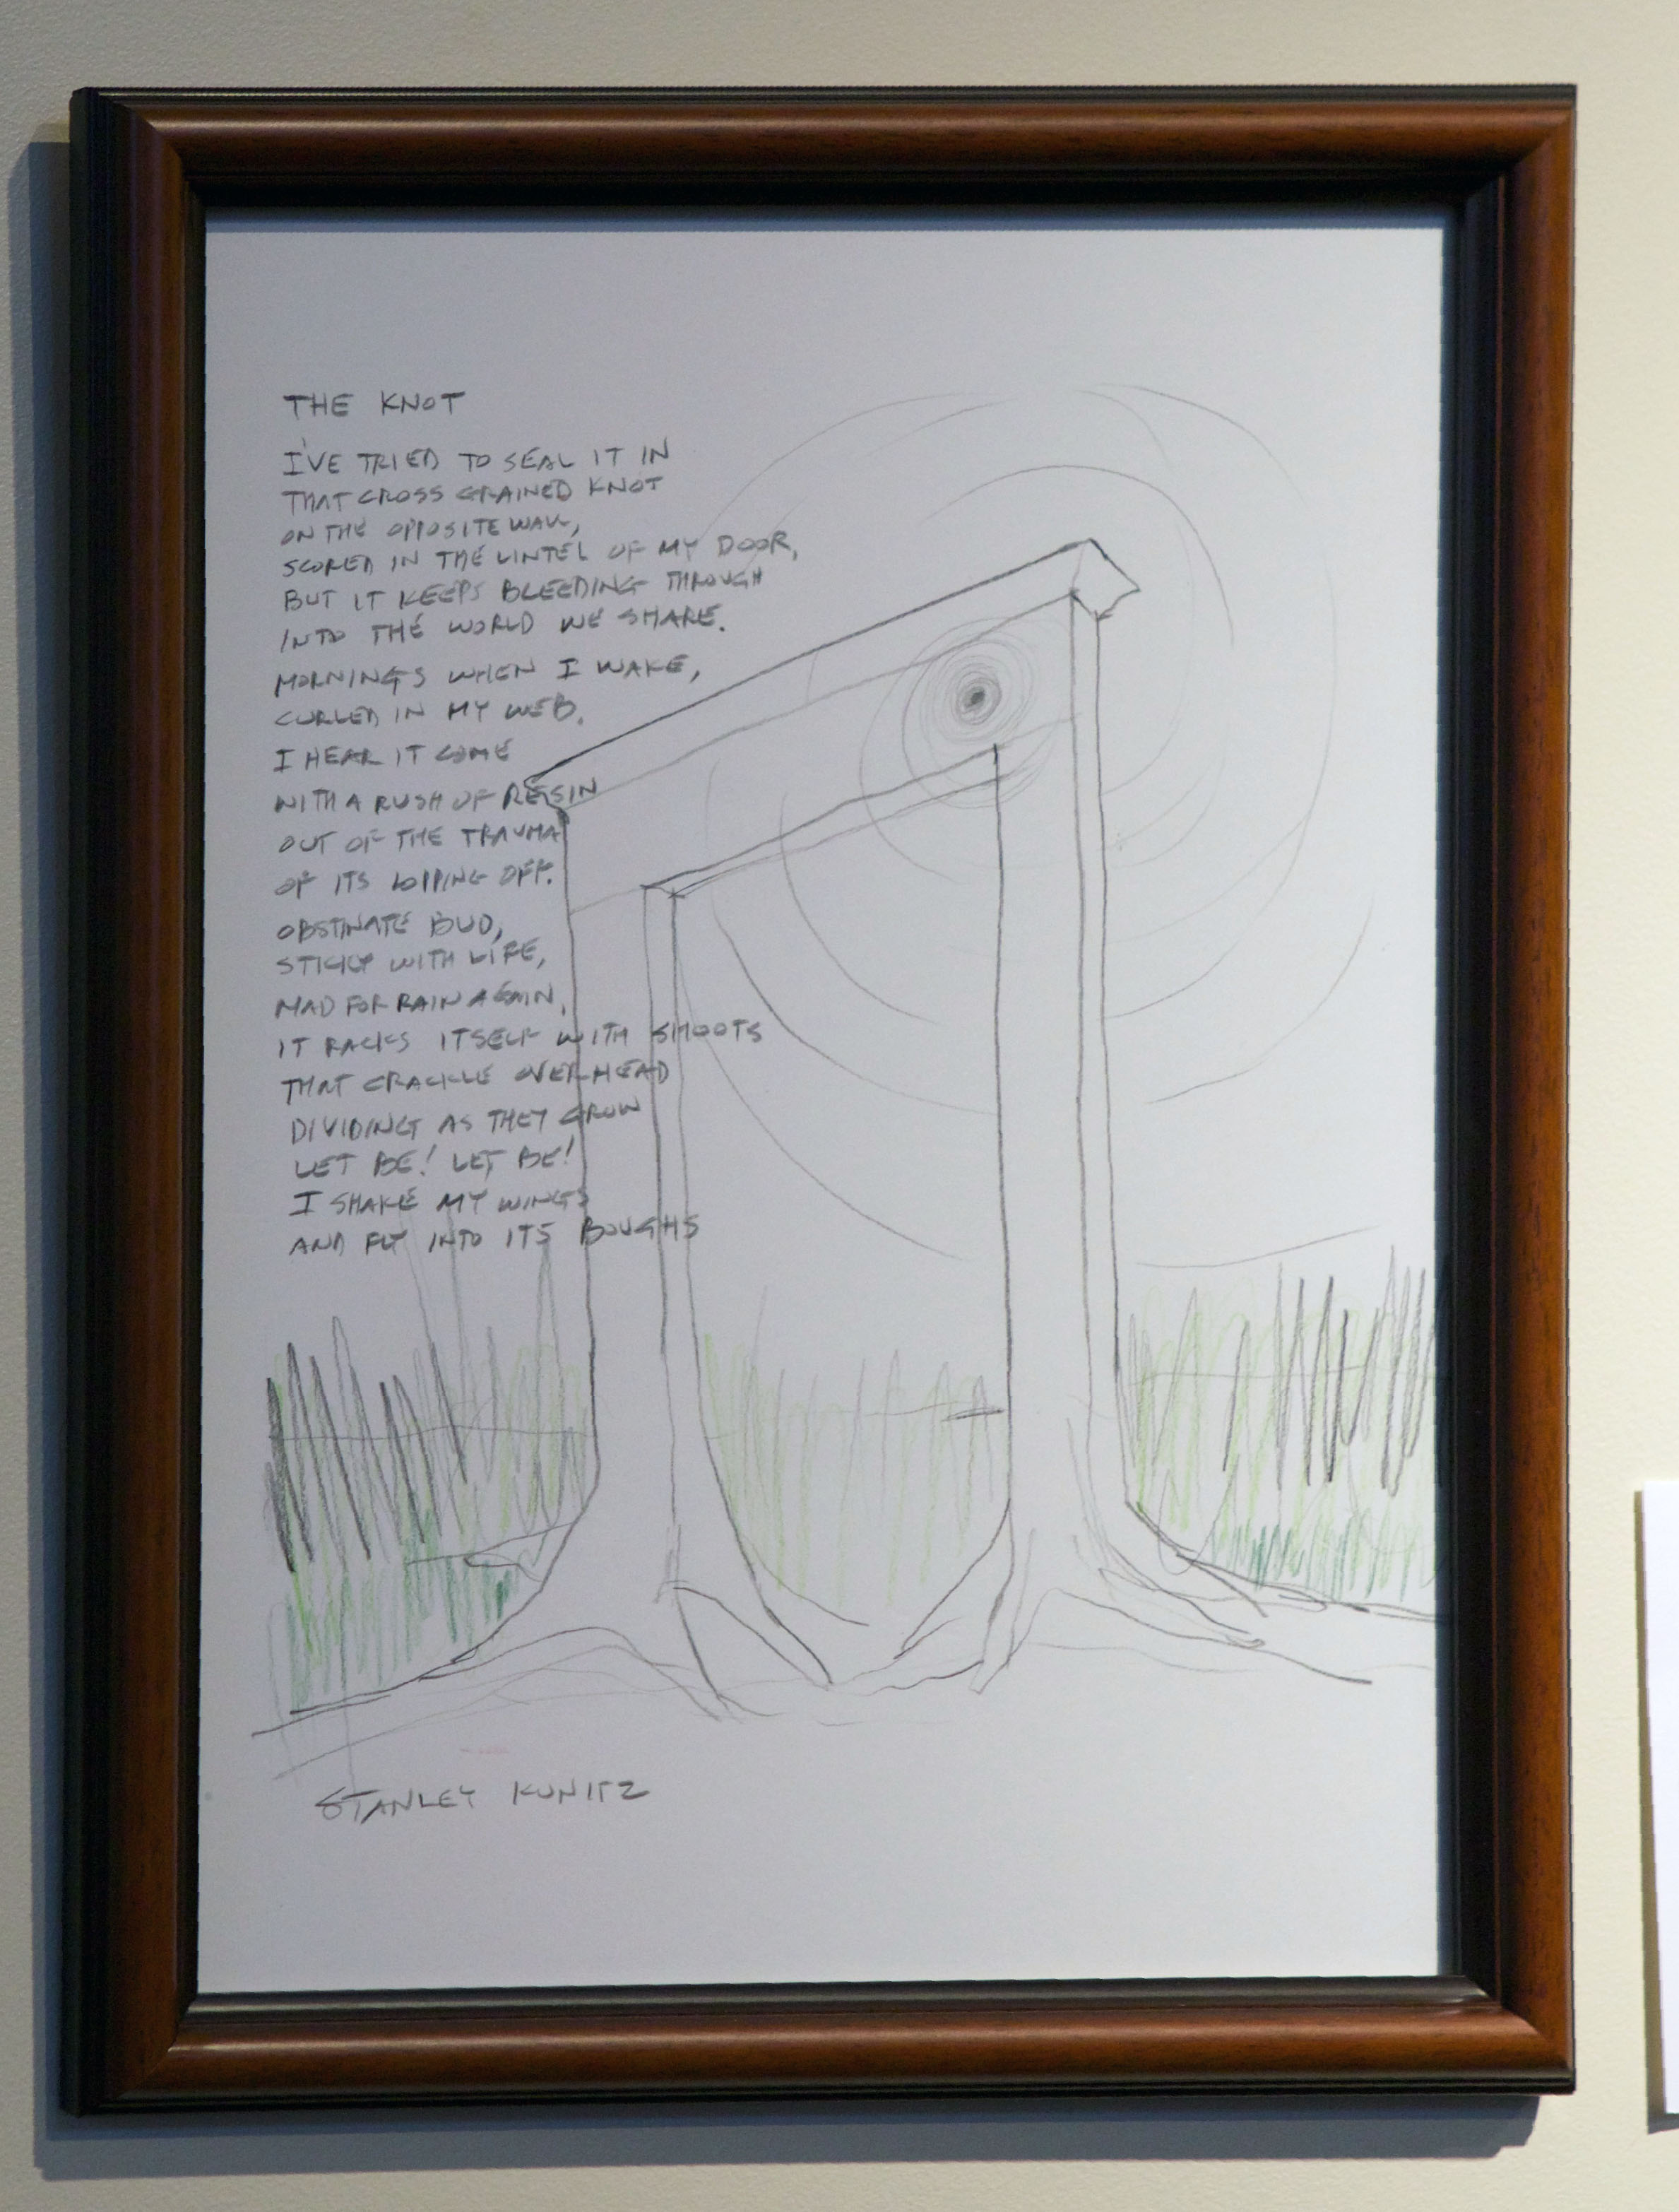 THE KNOT
I'VE TRIED TO SEAL IT IN
THAT CROSS GRAINED KNOT
ON THE OPPOSITE WALL,
SCORED IN THE LINTEL OF MY DOOR,
BUT IT KEEPS BLEEDING THROUGH
INTO THE WORLD WE SHARE.
MORNINGS WHEN I WAKE,
CURLED IN MY WEB,
I HEAR IT COME
WITH A RUSH OF RESIN
OUT OF THE TRAUMA
OF ITS LOPPING OFF.
OBSTINATE BUD,
STICKY WITH LIFE,
MAD FOR RAIN AGAIN,
IT RACKS ITSELF WITH SHOOTS
THAT CRACKLE OVERHEAD
DIVIDING AS THEY GROW
LET BE! LET BE!
I SHAKE MY WINGS
AND FLY INTO ITS BOUGHS
STANLEY KUNITZ